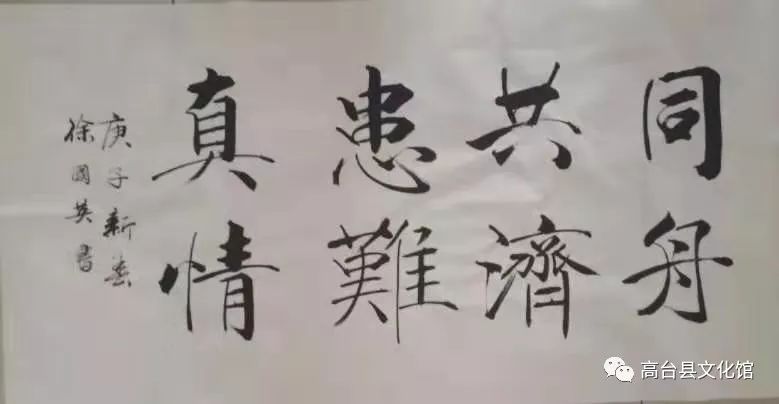 同舟
共濟
患難
真情
庚子新春
徐國英書
高台县文化馆